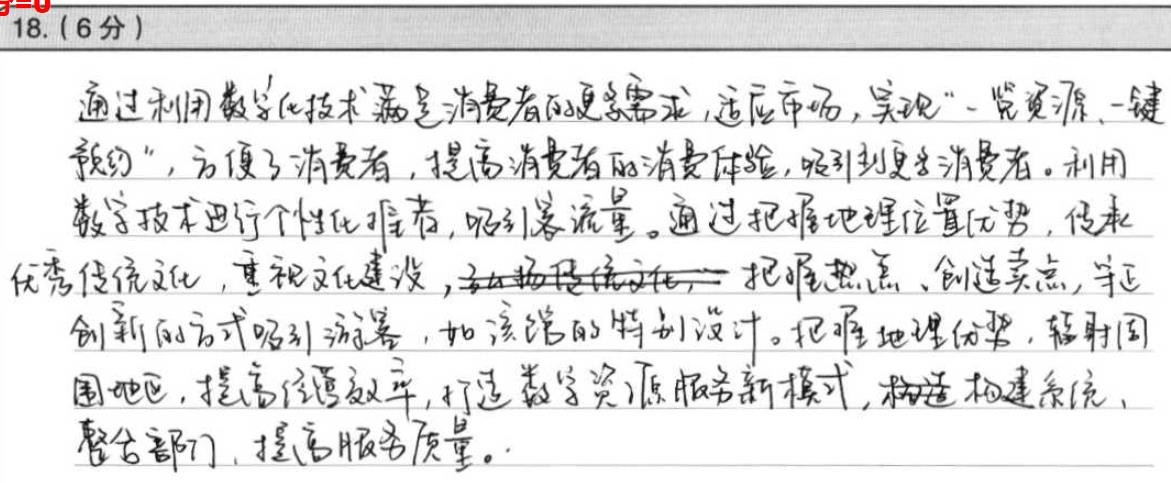 18.(6分)
通过利用数字化技术满足消费者的更多需求,适应市场,实现“一览资源、一键
预约”,方便了消费者,提高消费者的消费体验,吸引到更多消费者。利用
数字技术进行个性化推荐,吸引客流量。通过把握地理位置优势,传承
优秀传统文化,重视文化建设,把握热点、创造卖点,守正
创新的方式吸引游客,如该馆的特别设计。把握地理优势,辐射周
围地区,提高运营效率,打造数字资源服务新模式,构建系统、
整合部门、提高服务质量。